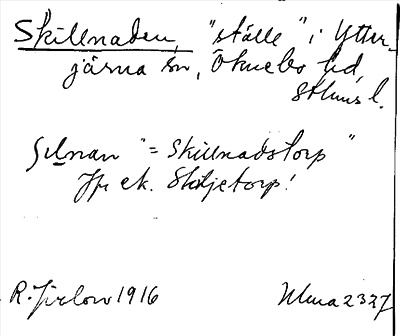 Skillnaden, "ställe" i Ytter-
järna sn, Öknebo hd,
Sthlms l.
"= Skillnadstorp"
Jfr ek. Skiljetorp!
R. Jirlow 1916 Ulma 2337